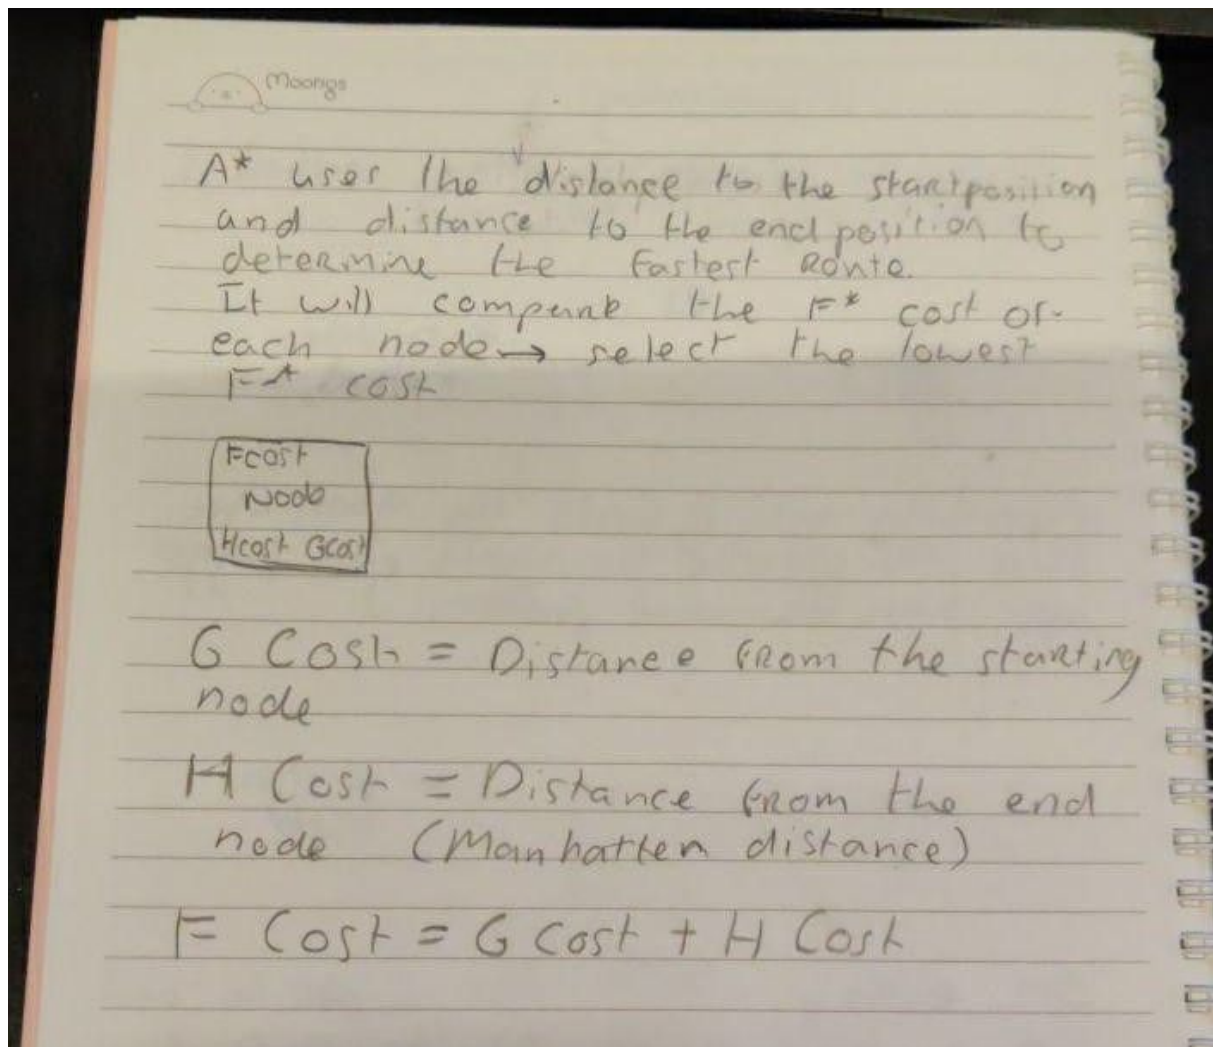 Moongs
A* uses the distance to the startposition
and distance to the end position to
determine the fastest Route.
It will compare the F* cost of
each node → select the lowest
F* cost
Fcost
Node
Hcost Gcost
G Cost = Distance from the starting
node
H Cost = Distance from the end
node (Manhatten distance)
F Cost = G Cost + H Cost